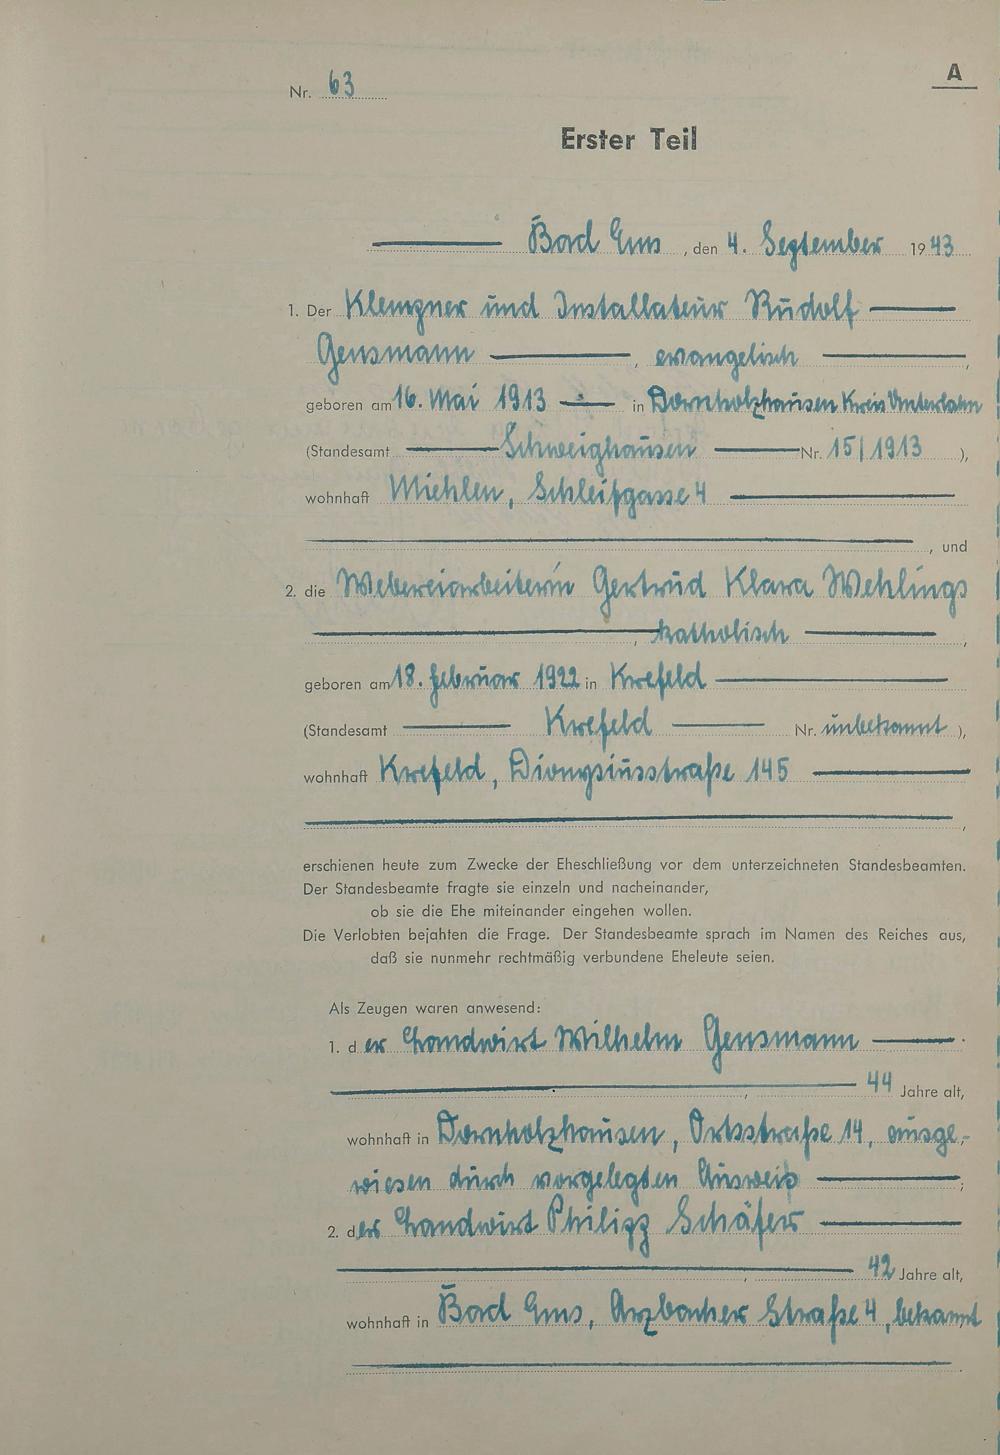 A
Nr. 63
Erster Teil
Bad Ems, den 4. September 1943
1. Der Klempner und Installateur Rudolf
Gensmann, evangelisch,
geboren am 16. Mai 1913 in Dornholzhausen Kreis Unterlahn
(Standesamt Schweighausen Nr. 15/1913),
wohnhaft Miehlen, Schleifgasse 4
, und
2. die Webereiarbeiterin Gertrud Klara Wehlings
, katholisch,
geboren am 18. Februar 1922 in Krefeld
(Standesamt Krefeld Nr. unbekannt),
wohnhaft Krefeld, Dionysiusstraße 145
,
erschienen heute zum Zwecke der Eheschließung vor dem unterzeichneten Standesbeamten.
Der Standesbeamte fragte sie einzeln und nacheinander,
ob sie die Ehe miteinander eingehen wollen.
Die Verlobten bejahten die Frage. Der Standesbeamte sprach im Namen des Reiches aus,
daß sie nunmehr rechtmäßig verbundene Eheleute seien.
Als Zeugen waren anwesend:
1. der Landwirt Wilhelm Gensmann
, 44 Jahre alt,
wohnhaft in Dornholzhausen, Ortsstraße 14, ausge-
wiesen durch vorgelegten Ausweis;
2. der Landwirt Philipp Schäfer
, 42 Jahre alt,
wohnhaft in Bad Ems, Arzbacher Straße 4, bekannt
.